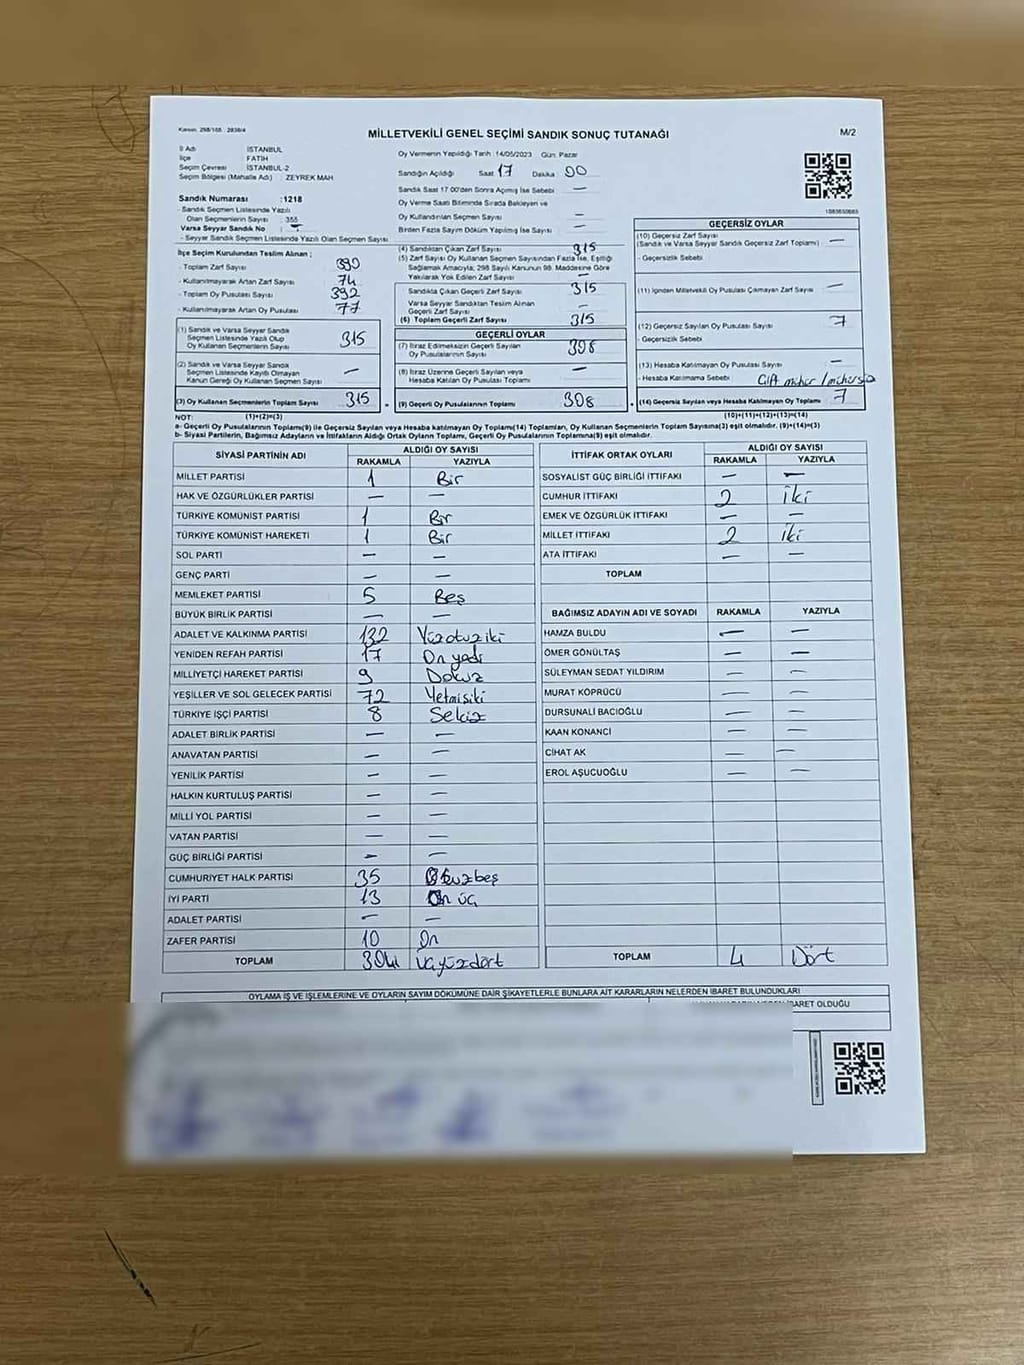 Kanun: 298/105 : 2839/4
MİLLETVEKİLİ GENEL SEÇİMİ SANDIK SONUÇ TUTANAĞI
M/2
İl Adı : İSTANBUL
İlçe : FATİH
Seçim Çevresi : İSTANBUL-2
Seçim Bölgesi (Mahalle Adı) : ZEYREK MAH.
Sandık Numarası :1218
- Sandık Seçmen Listesinde Yazılı
Olan Seçmenlerin Sayısı : 355
Varsa Seyyar Sandık No : —
- Seyyar Sandık Seçmen Listesinde Yazılı Olan Seçmen Sayısı
İlçe Seçim Kurulundan Teslim Alınan ;
- Toplam Zarf Sayısı : 390
- Kullanılmayarak Artan Zarf Sayısı : 74
- Toplam Oy Pusulası Sayısı : 392
- Kullanılmayarak Artan Oy Pusulası : 77
(1) Sandık ve Varsa Seyyar Sandık
Seçmen Listesinde Yazılı Olup
Oy Kullanan Seçmenlerin Sayısı 315
(2) Sandık ve Varsa Seyyar Sandık
Seçmen Listesinde Kayıtlı Olmayan
Kanun Gereği Oy Kullanan Seçmen Sayısı —
(3) Oy Kullanan Seçmenlerin Toplam Sayısı 315
Oy Vermenin Yapıldığı Tarih :14/05/2023 Gün: Pazar
Sandığın Açıldığı Saat 17 Dakika 00
Sandık Saat 17.00'den Sonra Açılmış İse Sebebi : —
Oy Verme Saati Bitiminde Sırada Bekleyen ve
Oy Kullandırılan Seçmen Sayısı : —
Birden Fazla Sayım Döküm Yapılmış İse Sayısı : —
(4) Sandıktan Çıkan Zarf Sayısı : 315
(5) Zarf Sayısı Oy Kullanan Seçmen Sayısından Fazla İse, Eşitliği
Sağlamak Amacıyla, 298 Sayılı Kanunun 98. Maddesine Göre
Yakılarak Yok Edilen Zarf Sayısı : —
Sandıkta Çıkan Geçerli Zarf Sayısı : 315
Varsa Seyyar Sandıktan Teslim Alınan
Geçerli Zarf Sayısı : —
(6) Toplam Geçerli Zarf Sayısı : 315
GEÇERLİ OYLAR
(7) İtiraz Edilmeksizin Geçerli Sayılan
Oy Pusulalarının Sayısı : 308
(8) İtiraz Üzerine Geçerli Sayılan veya
Hesaba Katılan Oy Pusulası Toplamı : —
(9) Geçerli Oy Pusulalarının Toplamı : 308
1883650665
GEÇERSİZ OYLAR
(10) Geçersiz Zarf Sayısı : —
(Sandık ve Varsa Seyyar Sandık Geçersiz Zarf Toplamı)
- Geçersizlik Sebebi :
(11) İçinden Milletvekili Oy Pusulası Çıkmayan Zarf Sayısı : —
(12) Geçersiz Sayılan Oy Pusulası Sayısı : 7
- Geçersizlik Sebebi :
(13) Hesaba Katılmayan Oy Pusulası Sayısı : —
- Hesaba Katılmama Sebebi : mühür
(14) Geçersiz Sayılan veya Hesaba Katılmayan Oy Toplamı : 7
NOT: (1)+(2)=(3) (10)+(11)+(12)+(13)=(14)
a- Geçerli Oy Pusulalarının Toplamı(9) ile Geçersiz Sayılan veya Hesaba katılmayan Oy Toplamı(14) Toplamları, Oy Kullanan Seçmenlerin Toplam Sayısına(3) eşit olmalıdır. (9)+(14)=(3)
b- Siyasi Partilerin, Bağımsız Adayların ve İttifakların Aldığı Ortak Oyların Toplamı, Geçerli Oy Pusulalarının Toplamına(9) eşit olmalıdır.
SİYASİ PARTİNİN ADI ALDIĞI OY SAYISI
RAKAMLA YAZIYLA
MİLLET PARTİSİ 1 Bir
HAK VE ÖZGÜRLÜKLER PARTİSİ — —
TÜRKİYE KOMÜNİST PARTİSİ 1 Bir
TÜRKİYE KOMÜNİST HAREKETİ 1 Bir
SOL PARTİ — —
GENÇ PARTİ — —
MEMLEKET PARTİSİ 5 Beş
BÜYÜK BİRLİK PARTİSİ — —
ADALET VE KALKINMA PARTİSİ 132 Yüzotuziki
YENİDEN REFAH PARTİSİ 17 On yedi
MİLLİYETÇİ HAREKET PARTİSİ 9 Dokuz
YEŞİLLER VE SOL GELECEK PARTİSİ 72 Yetmişiki
TÜRKİYE İŞÇİ PARTİSİ 8 Sekiz
ADALET BİRLİK PARTİSİ — —
ANAVATAN PARTİSİ — —
YENİLİK PARTİSİ — —
HALKIN KURTULUŞ PARTİSİ — —
MİLLİ YOL PARTİSİ — —
VATAN PARTİSİ — —
GÜÇ BİRLİĞİ PARTİSİ — —
CUMHURİYET HALK PARTİSİ 35 Otuzbeş
İYİ PARTİ 13 On üç
ADALET PARTİSİ — —
ZAFER PARTİSİ 10 On
TOPLAM 304 Üçyüzdört
İTTİFAK ORTAK OYLARI ALDIĞI OY SAYISI
RAKAMLA YAZIYLA
SOSYALİST GÜÇ BİRLİĞİ İTTİFAKI — —
CUMHUR İTTİFAKI 2 iki
EMEK VE ÖZGÜRLÜK İTTİFAKI — —
MİLLET İTTİFAKI 2 iki
ATA İTTİFAKI — —
TOPLAM
BAĞIMSIZ ADAYIN ADI VE SOYADI RAKAMLA YAZIYLA
HAMZA BULDU — —
ÖMER GÖNÜLTAŞ — —
SÜLEYMAN SEDAT YILDIRIM — —
MURAT KÖPRÜCÜ — —
DURSUNALİ BACIOĞLU — —
KAAN KONANCİ — —
CİHAT AK — —
EROL AŞUCUOĞLU — —
TOPLAM 4 Dört
OYLAMA İŞ VE İŞLEMLERİNE VE OYLARIN SAYIM DÖKÜMÜNE DAİR ŞİKAYETLERLE BUNLARA AİT KARARLARIN NELERDEN İBARET BULUNDUKLARI
İBARET OLDUĞU